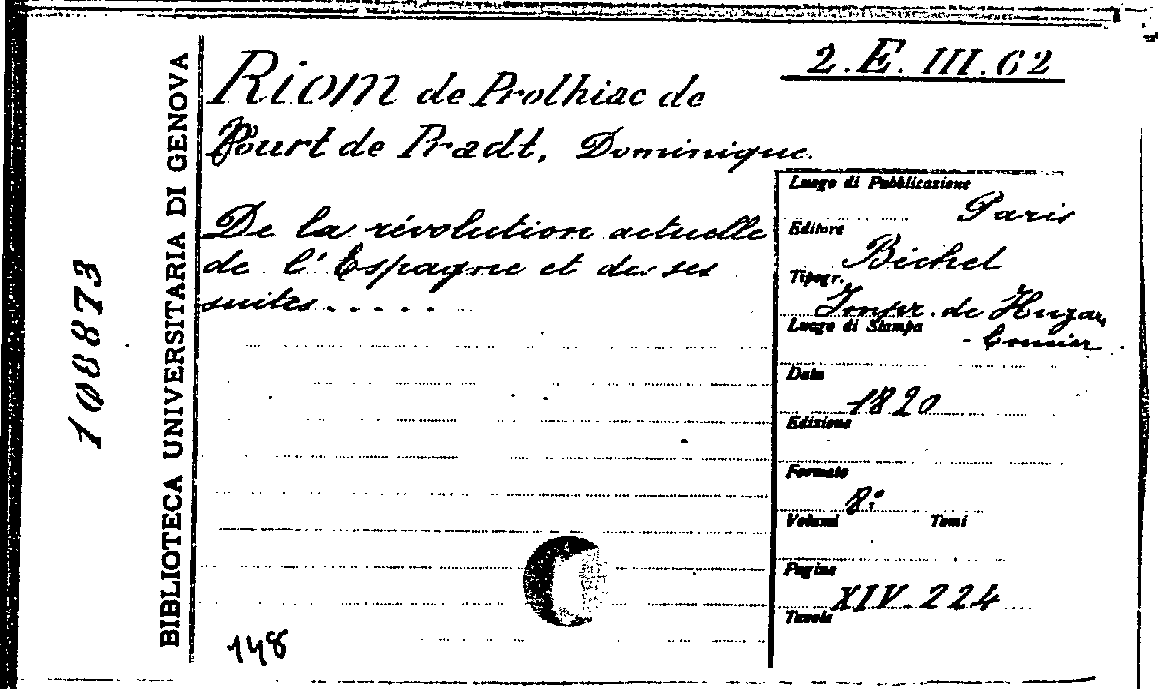 2.E.III.62
Riom de Prolhiac de
Fourt de Pradt, Dominique.
De la révolution actuelle
de l'Espagne et de ses
suites.....
Luogo di Pubblicazione
Paris
Editore
Béchet
Tipogr.
Impr. de Huzar,
Luogo di Stampa
- Courcier
Data
1820
Edizione
Formato
8°
Volumi Tomi
Pagine
XIV-224
Tavole
148
BIBLIOTECA UNIVERSITARIA DI GENOVA
108873